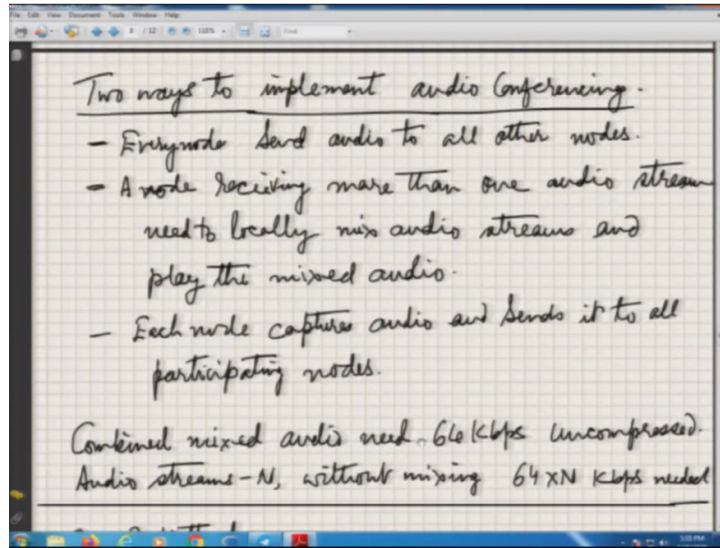 File Edit View Document Tools Window Help
8 / 12 110% Find
Two ways to implement audio Conferencing.
- Everynode Send audio to all other nodes.
- A node Recieving more than one audio stream
need to locally mix audio streams and
play the mixed audio.
- Each node captures audio and Sends it to all
participating nodes.
Combined mixed audio need 64 Kbps uncompressed.
Audio streams - N, without mixing 64 x N Kbps needed